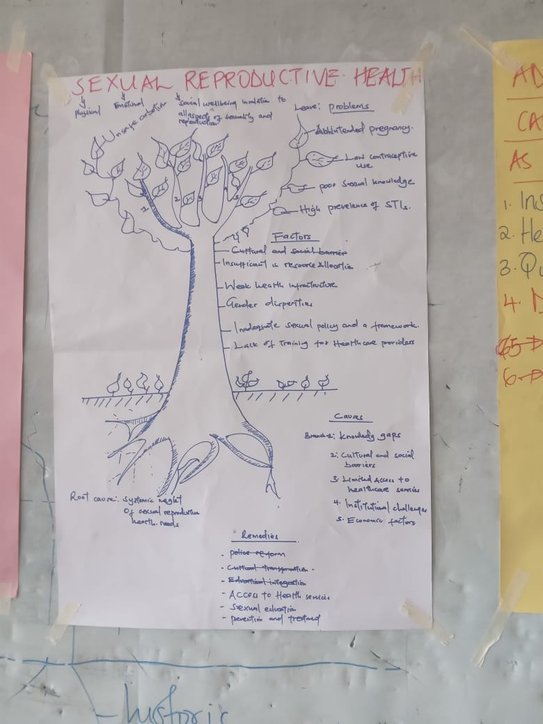 SEXUAL REPRODUCTIVE HEALTH
Physical
Emotional
Social wellbeing in relation to
all aspects of sexuality and
reproduction
Leave: problems
Unsafe abortion
Unintended pregnancy.
Low contraceptive
use
poor sexual knowledge
High prevelence of STIs.
1
2
3
Factors
Cultural and social barrier
Insufficient resource allocation
Weak health infrastructure
Gender disperities
Inadequate sexual policy and a framework.
Lack of Training for Healthcare providers
Causes
Branch 1: Knowledge gaps
2: Cultural and social
barriers
3: Limited Access to
healthcare services
4. Institutional challenges
5: Economic factors
Root cause: Systemic neglect
Of sexual reproductive
health needs
Remedies
- police reform
- Cultural
- Educational integration
- Access to Health services
- Sexual education
- prevention and
AD
CA
AS
1. Ins
2. He
3. Qu
4.
6-
- historic